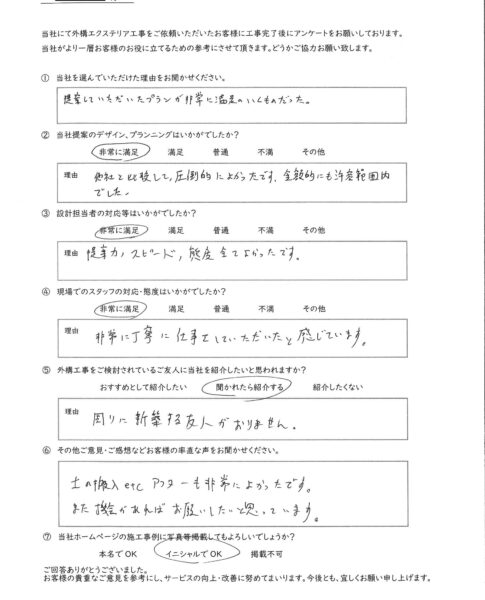 当社にて外構エクステリア工事をご依頼いただいたお客様に工事完了後にアンケートをお願いしております。
当社がより一層お客様のお役に立てるための参考にさせて頂きます。どうかご協力お願い致します。
① 当社を選んでいただけた理由をお聞かせください。
提案していただいたプランが非常に満足のいくものだった。
② 当社提案のデザイン、プランニングはいかがでしたか?
非常に満足 満足 普通 不満 その他
理由 他社と比較して、圧倒的によかったです。金額的にも許容範囲内
でした。
③ 設計担当者の対応等はいかがでしたか?
非常に満足 満足 普通 不満 その他
理由 提案力、スピード、態度全てよかったです。
④ 現場でのスタッフの対応・態度はいかがでしたか?
非常に満足 満足 普通 不満 その他
理由 非常に丁寧に仕事をしていただいたと感じています。
⑤ 外構工事をご検討されているご友人に当社を紹介したいと思われますか?
おすすめとして紹介したい 聞かれたら紹介する 紹介したくない
理由 周りに新築する友人がおりません。
⑥ その他ご意見・ご感想などお客様の率直な声をお聞かせください。
土の搬入etcアフターも非常によかったです。
また機会があればお願いしたいと思っています。
⑦ 当社ホームページの施工事例に写真等掲載してもよろしいでしょうか?
本名でOK イニシャルでOK 掲載不可
ご回答ありがとうございました。
お客様の貴重なご意見を参考にし、サービスの向上・改善に努めてまいります。今後とも、宜しくお願い申し上げます。